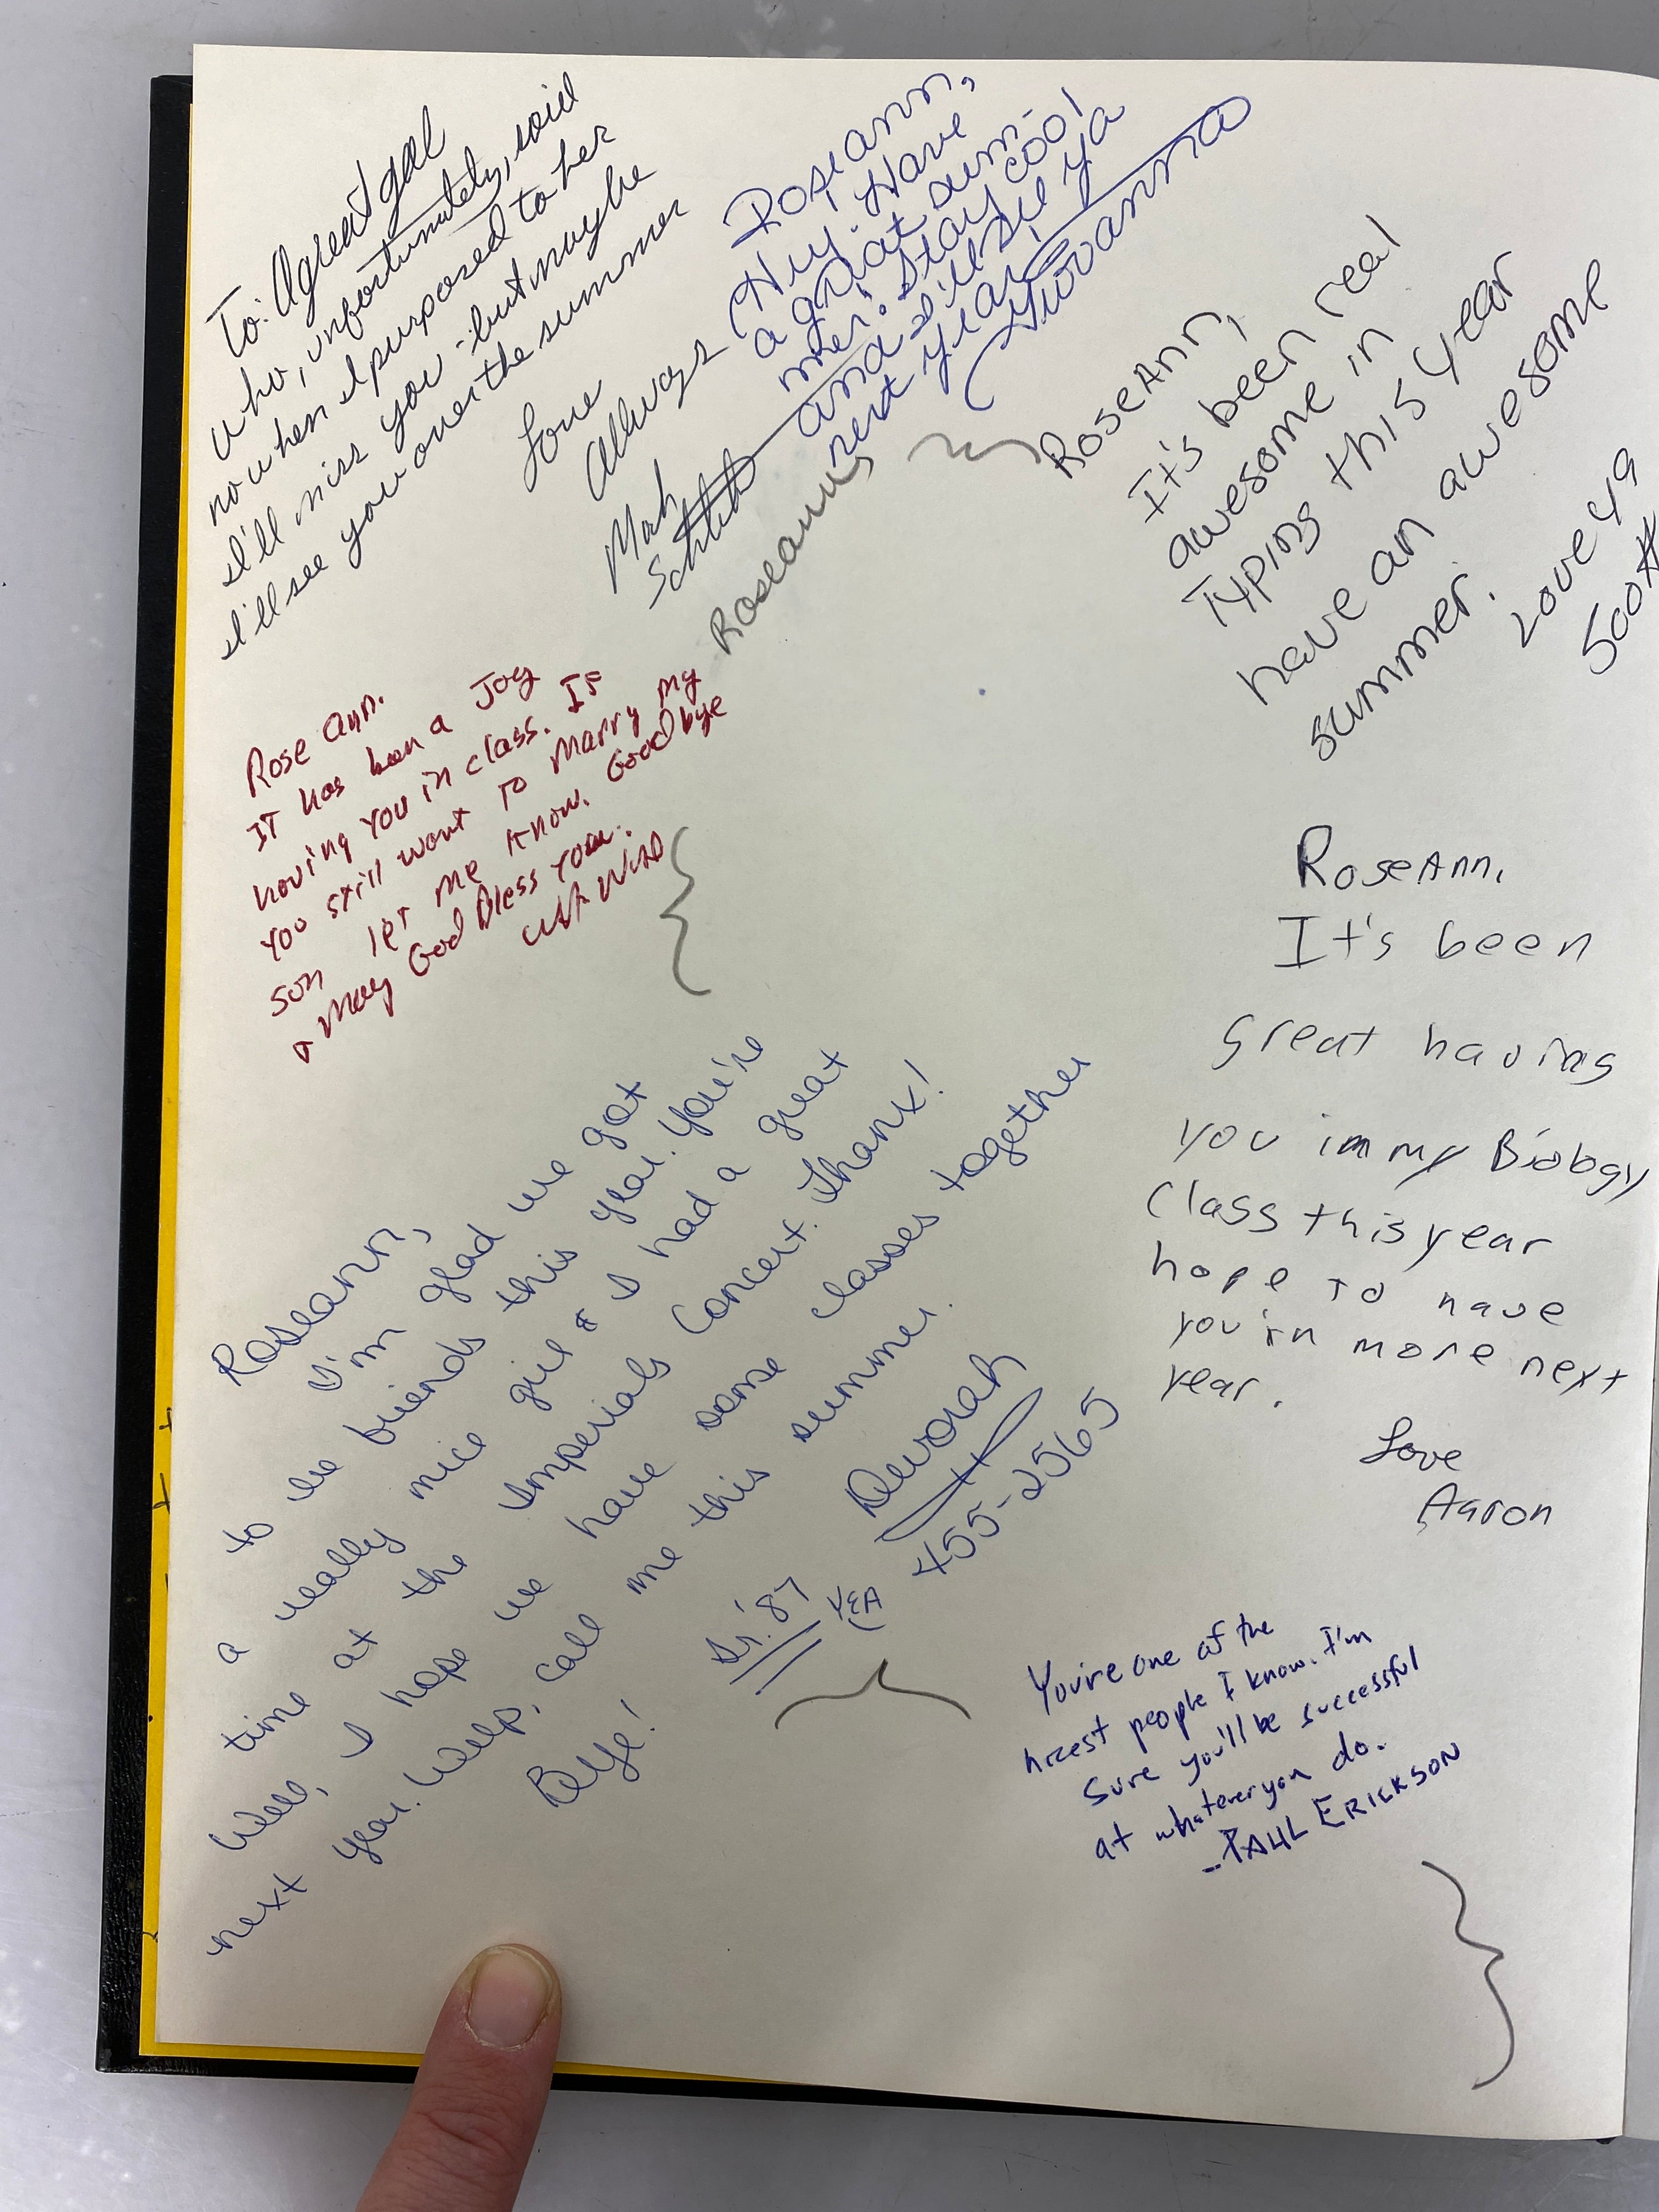 To: A great gal
who, unfortunately, said
no when I purposed to her
I'll miss you - but maybe
I'll see you over the summer
Love
Always
Roseann,
Hey. Have
a great sum-
mer. Stay cool
and I'll see ya
next year
Giovanna
Roseann
RoseAnn,
It's been real
awesome in
Typing this year
have an awesome
summer.
Love ya
Rose Ann.
IT has been a Joy
having you in class. If
you still want to marry my
son let me know. Goodbye
& may God Bless you.
RoseAnn,
It's been
great having
you in my Biology
class this year
hope to have
you in more next
year.
Love
Aaron
Roseann,
I'm glad we got
to be friends this year. You're
a really nice girl & I had a great
time at the Imperials Concert. Thanx!
Well, I hope we have some classes together
next year. Welp, call me this summer.
Bye!
Devorah
455-2565
Sr. '87
YEA
You're one of the
nicest people I know. I'm
sure you'll be successful
at whatever you do.
- PAUL ERICKSON